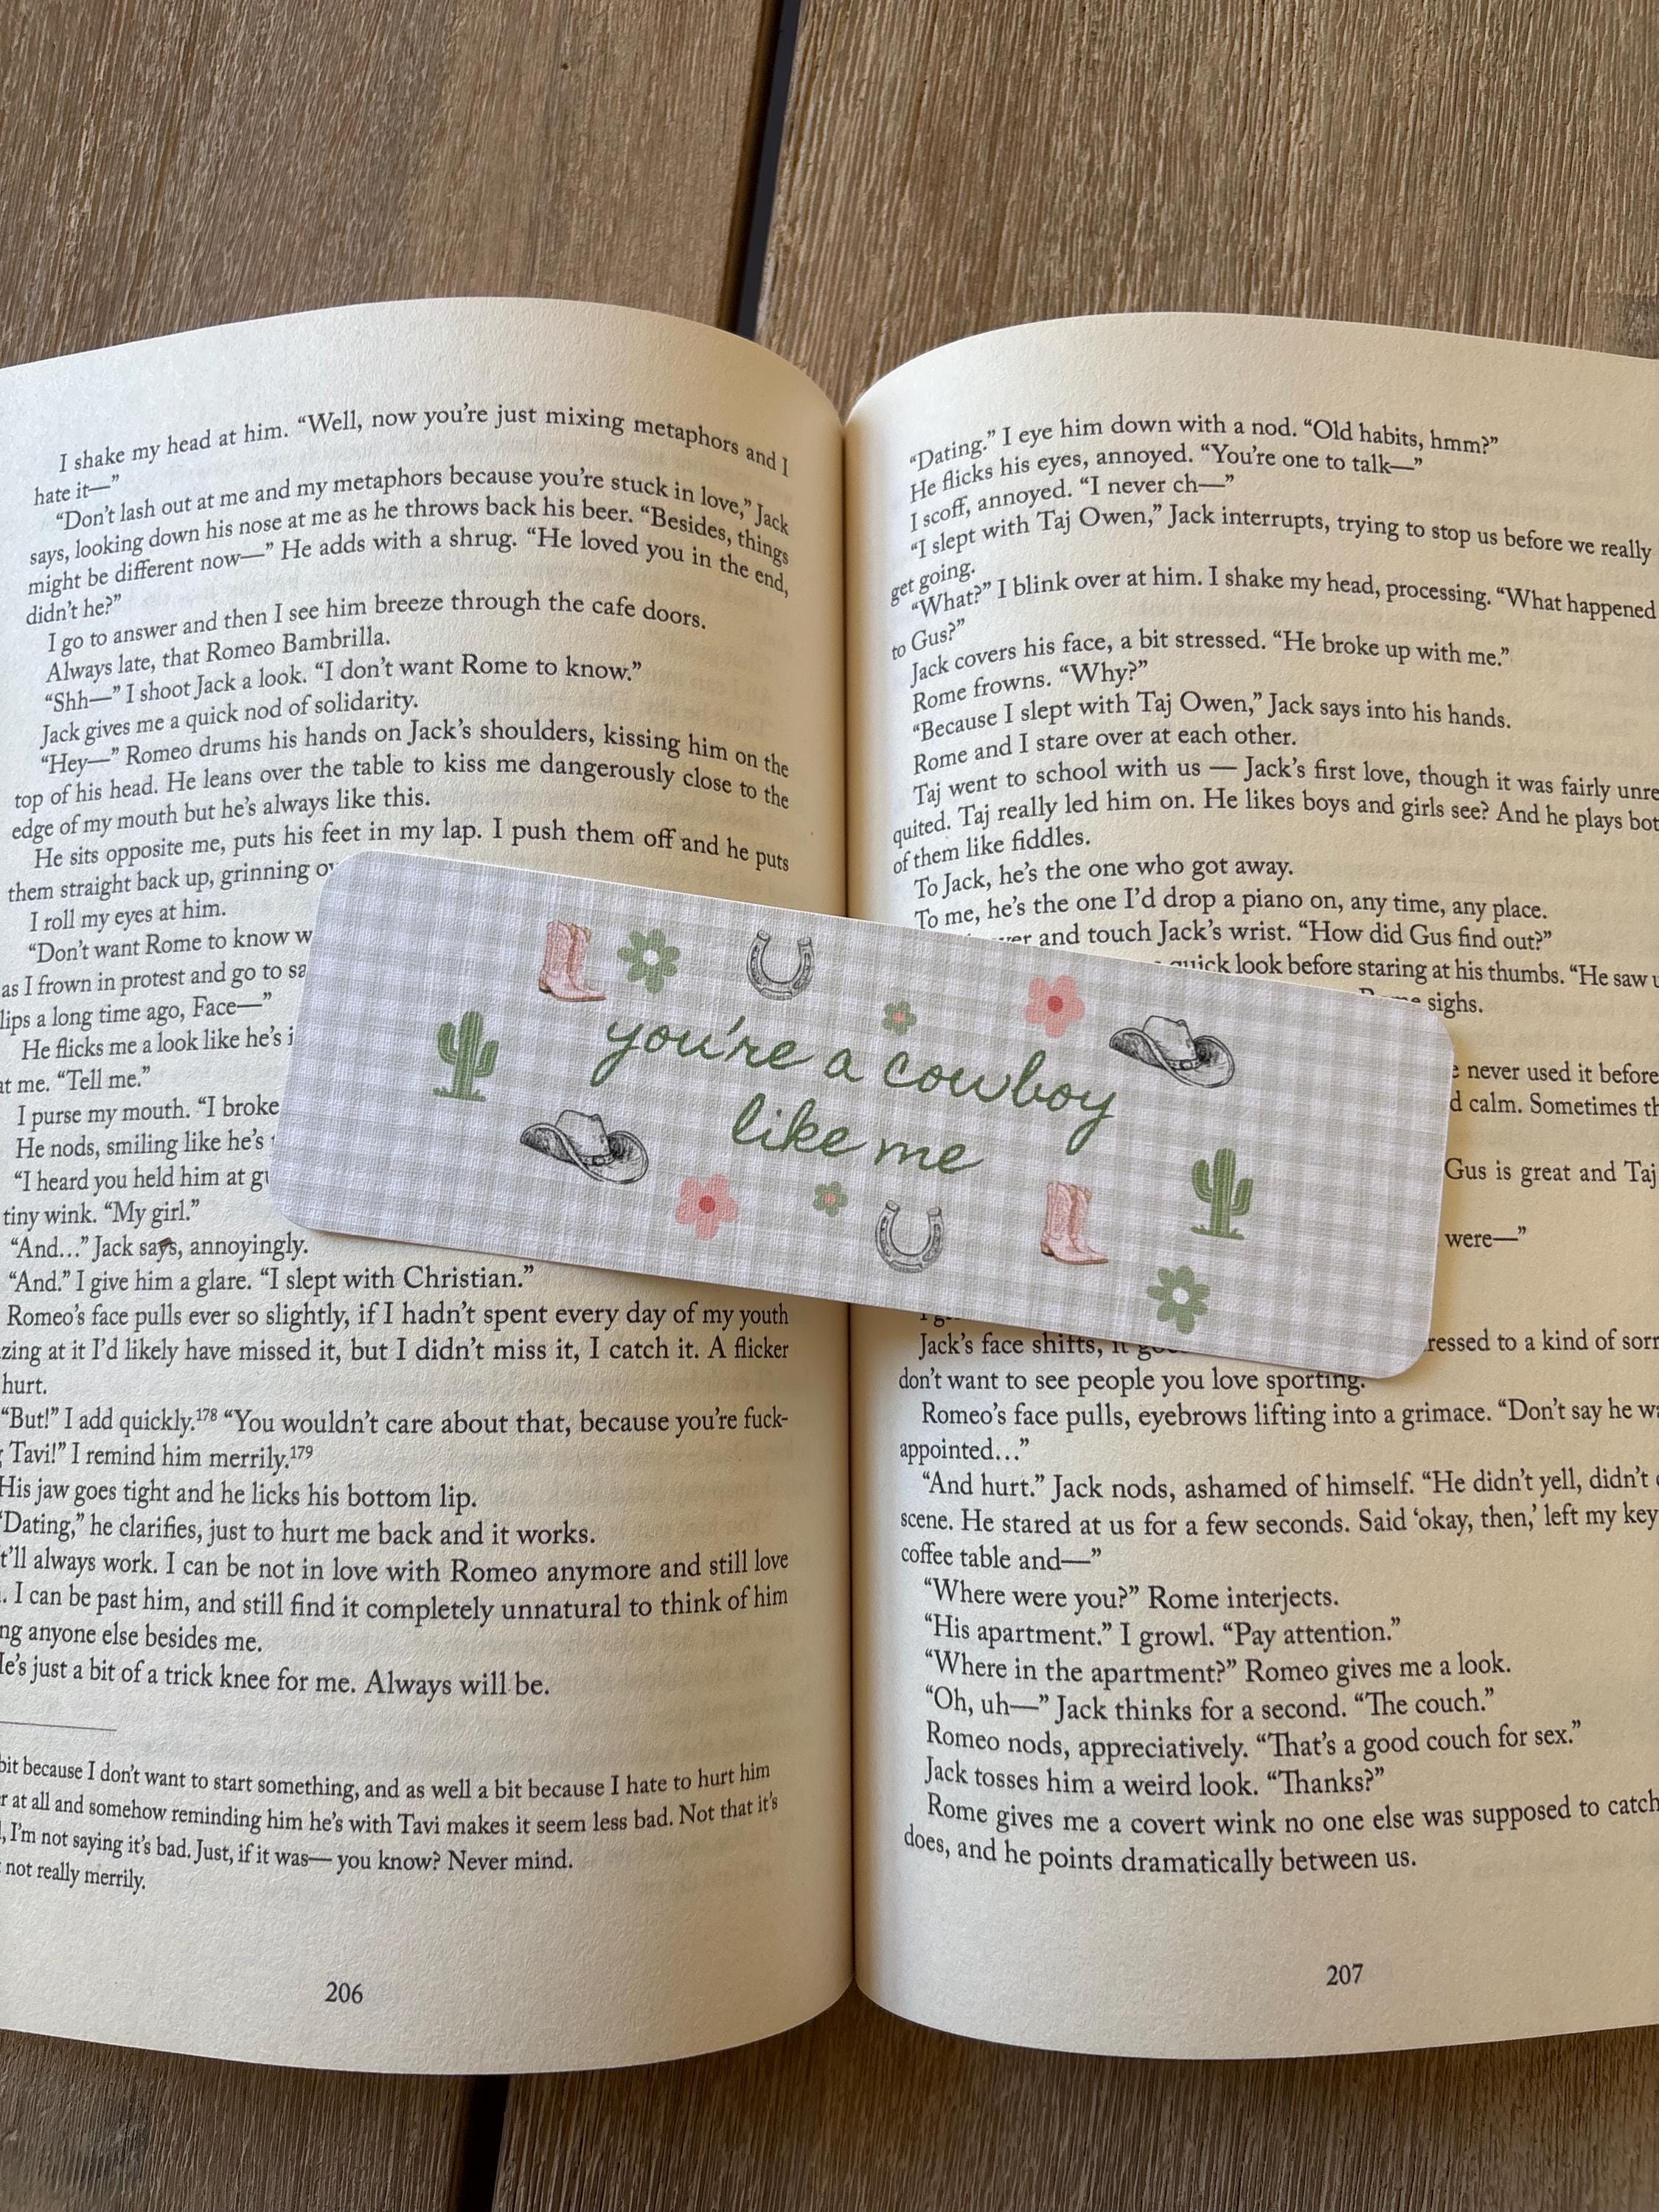 I shake my head at him. “Well, now you’re just mixing metaphors and I
hate it—”
“Don’t lash out at me and my metaphors because you’re stuck in love,” Jack
says, looking down his nose at me as he throws back his beer. “Besides, things
might be different now—” He adds with a shrug. “He loved you in the end,
didn’t he?”
I go to answer and then I see him breeze through the cafe doors.
Always late, that Romeo Bambrilla.
“Shh—” I shoot Jack a look. “I don’t want Rome to know.”
Jack gives me a quick nod of solidarity.
“Hey—” Romeo drums his hands on Jack’s shoulders, kissing him on the
top of his head. He leans over the table to kiss me dangerously close to the
edge of my mouth but he’s always like this.
He sits opposite me, puts his feet in my lap. I push them off and he puts
them straight back up, grinning
I roll my eyes at him.
“Don’t want Rome to know
as I frown in protest and go to
lips a long time ago, Face—”
He flicks me a look like he’s
at me. “Tell me.”
I purse my mouth. “I broke
He nods, smiling like he’s
“I heard you held him at
tiny wink. “My girl.”
“And…” Jack says, annoyingly.
“And.” I give him a glare. “I slept with Christian.”
Romeo’s face pulls ever so slightly, if I hadn’t spent every day of my youth
zing at it I’d likely have missed it, but I didn’t miss it, I catch it. A flicker
hurt.
“But!” I add quickly.¹⁷⁸ “You wouldn’t care about that, because you’re fuck-
Tavi!” I remind him merrily.¹⁷⁹
His jaw goes tight and he licks his bottom lip.
“Dating,” he clarifies, just to hurt me back and it works.
t’ll always work. I can be not in love with Romeo anymore and still love
. I can be past him, and still find it completely unnatural to think of him
ng anyone else besides me.
He’s just a bit of a trick knee for me. Always will be.
bit because I don’t want to start something, and as well a bit because I hate to hurt him
r at all and somehow reminding him he’s with Tavi makes it seem less bad. Not that it’s
, I’m not saying it’s bad. Just, if it was— you know? Never mind.
not really merrily.
206
you’re a cowboy
like me
“Dating.” I eye him down with a nod. “Old habits, hmm?”
He flicks his eyes, annoyed. “You’re one to talk—”
I scoff, annoyed. “I never ch—”
“I slept with Taj Owen,” Jack interrupts, trying to stop us before we really
get going.
“What?” I blink over at him. I shake my head, processing. “What happened
to Gus?”
Jack covers his face, a bit stressed. “He broke up with me.”
Rome frowns. “Why?”
“Because I slept with Taj Owen,” Jack says into his hands.
Rome and I stare over at each other.
Taj went to school with us — Jack’s first love, though it was fairly unre
quited. Taj really led him on. He likes boys and girls see? And he plays bot
of them like fiddles.
To Jack, he’s the one who got away.
To me, he’s the one I’d drop a piano on, any time, any place.
and touch Jack’s wrist. “How did Gus find out?”
quick look before staring at his thumbs. “He saw u
sighs.
never used it before
d calm. Sometimes th
Gus is great and Taj
were—”
Jack’s face shifts, it
ressed to a kind of sorr
don’t want to see people you love sporting.
Romeo’s face pulls, eyebrows lifting into a grimace. “Don’t say he wa
appointed…”
“And hurt.” Jack nods, ashamed of himself. “He didn’t yell, didn’t
scene. He stared at us for a few seconds. Said ‘okay, then,’ left my key
coffee table and—”
“Where were you?” Rome interjects.
“His apartment.” I growl. “Pay attention.”
“Where in the apartment?” Romeo gives me a look.
“Oh, uh—” Jack thinks for a second. “The couch.”
Romeo nods, appreciatively. “That’s a good couch for sex.”
Jack tosses him a weird look. “Thanks?”
Rome gives me a covert wink no one else was supposed to catch
does, and he points dramatically between us.
207